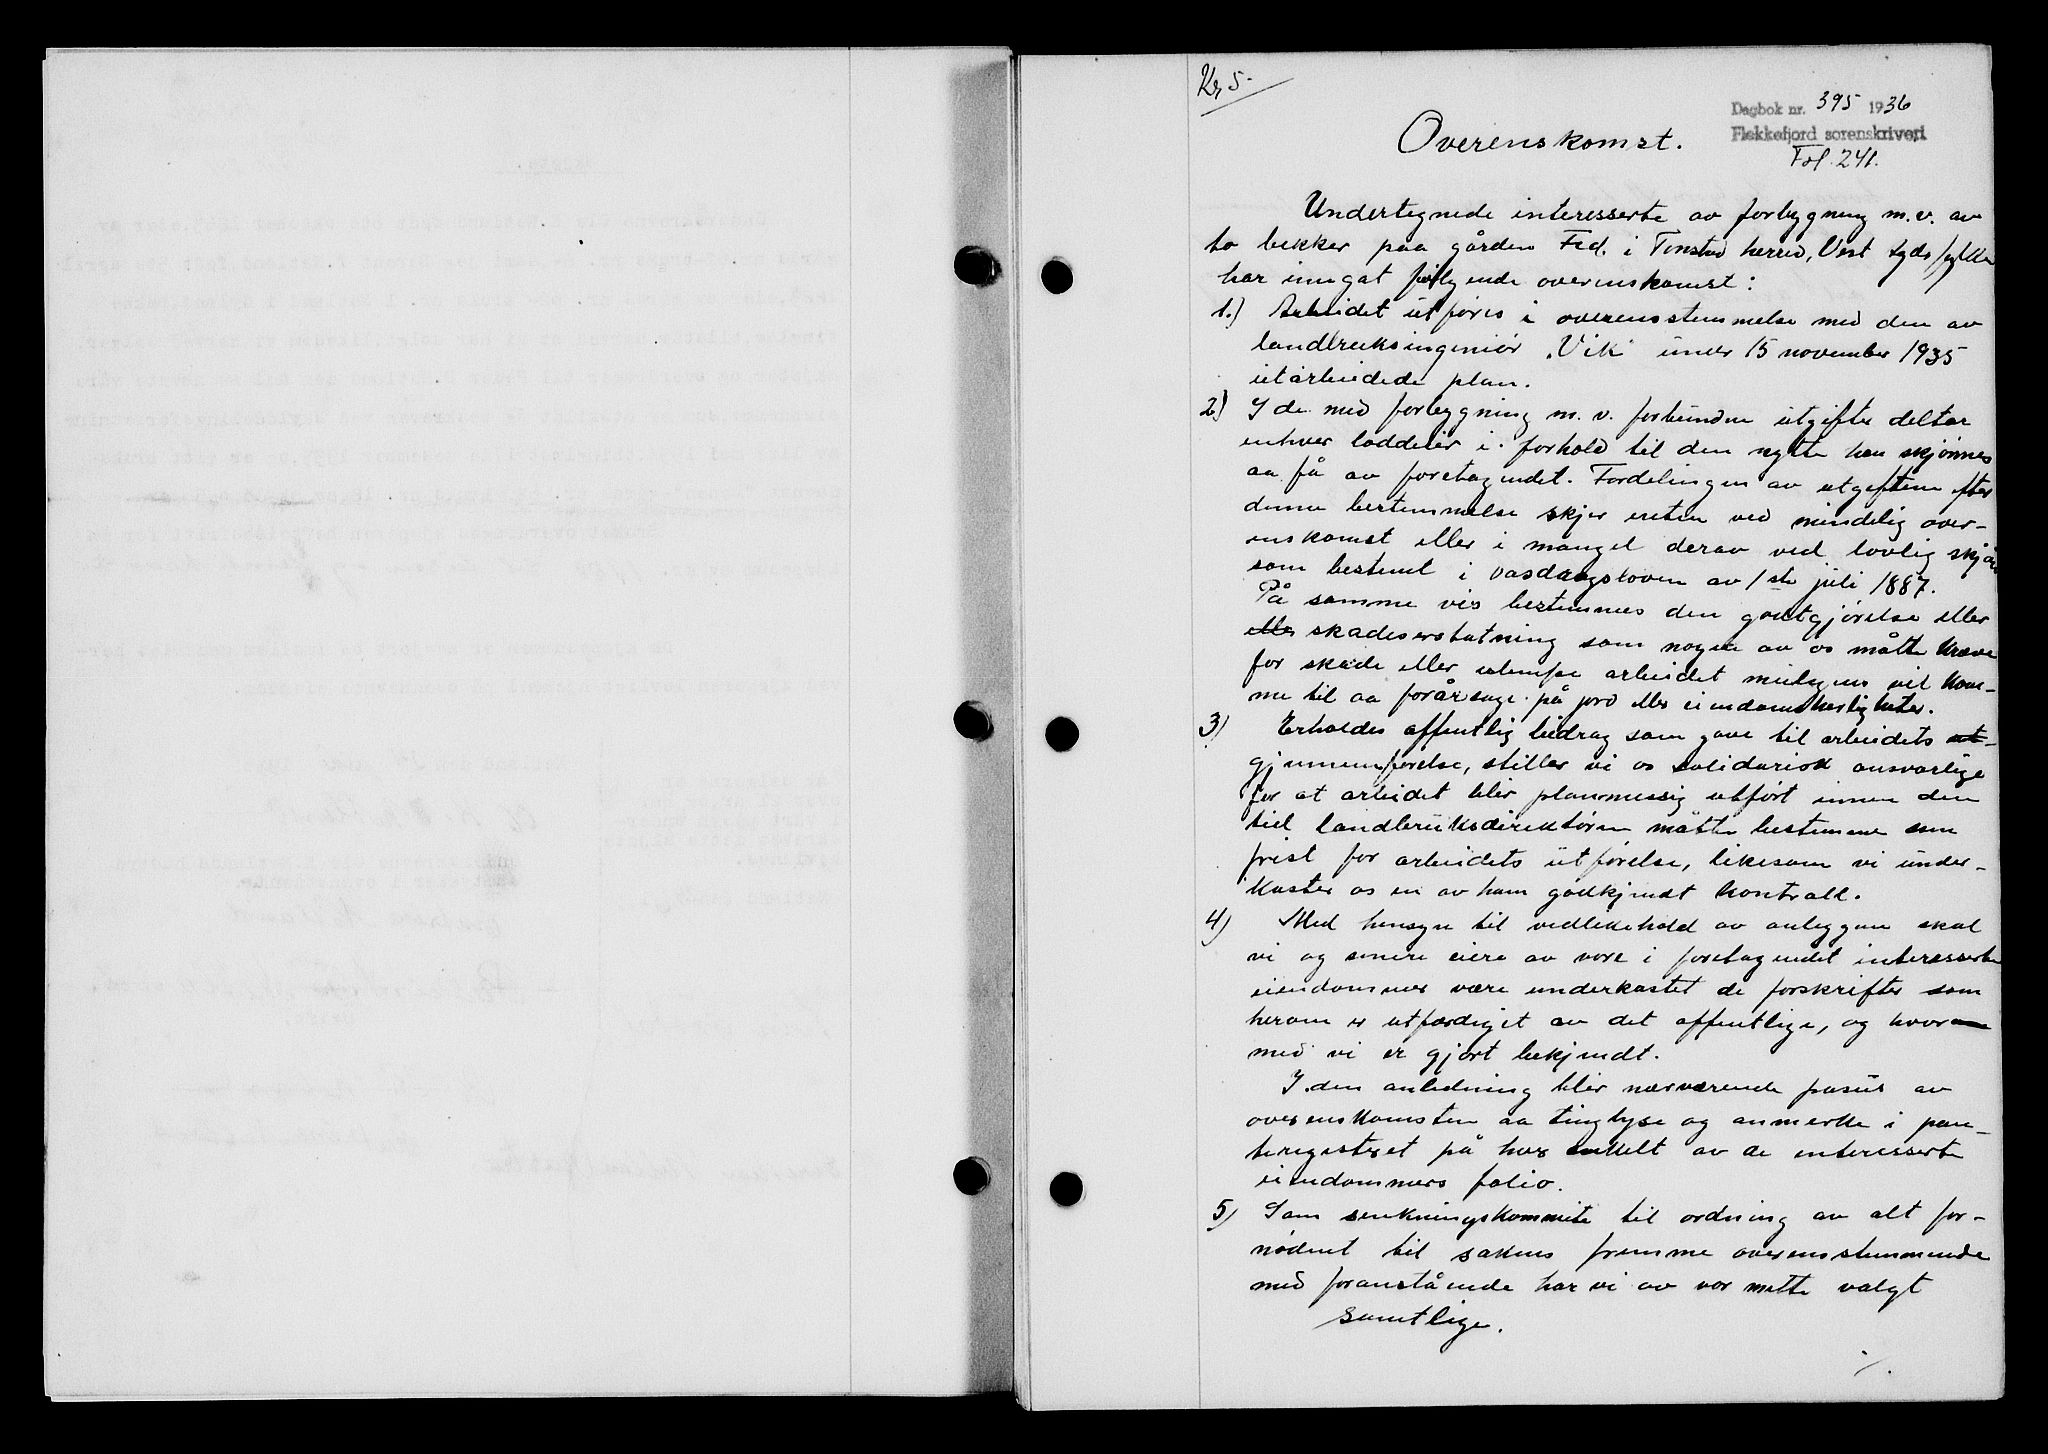 Kr 5-
Dagbok nr. 395 1936
Flekkefjord sorenskriveri
Fol. 241.
Overenskomst.
Undertegnede interesserte av forbygning m.v. av
to bekker paa gården Fed. i Tonstad herred, Vest Agds fylke
har inngat følgende overenskomst:
1.) Arbeidet utføres i overensstemmelse med den av
landbruksingeniør "Vik" under 15 november 1935
utarbeidede plan.
2) I de med forbygning m.v. forbundne utgifter deltar
enhver loddeier i forhold til den nytte han skjønnes
aa få av foretagendet. Fordelingen av utgiftene efter
denne bestemmelse skjer enten ved mindelig over-
enskomst eller i mangel derav ved lovlig skjøn
som bestemt i vasdragsloven av 1ste juli 1887.
På samme vis bestemmes den godtgjørelse eller
eller skadeserstatning som nogen av os måtte kræve
for skade eller ulempe arbeidet muligens vil kom-
me til aa forårsage på jord eller eiendomsherligheter.
3) Erholdes offentlig bidrag som gave til arbeidets ut-
gjennemførelse, stiller vi os solidarisk ansvarlige
for at arbeidet blir planmessig utført innen den
tid landbruksdirektøren måtte bestemme som
frist for arbeidets utførelse, likesom vi under-
kaster os en av ham godkjendt kontroll.
4) Med hensyn til vedlikehold av anleggene skal
vi og senere eiere av vore i foretagendet interesserte
eiendommer være underkastet de forskrifter som
herom er utfærdiget av det offentlige, og hvorom
med vi er gjort bekjendt.
I den anledning blir nærværende pasus av
overenskomsten aa tinglyse og anmerke i pan-
teregisteret på hver enkelt av de interesserte
eiendommers folio.
5) Som senkningskommite til ordning av alt for-
nødent til sakens fremme overensstemmende
med foranstående har vi av vor mitte valgt
samtlige.